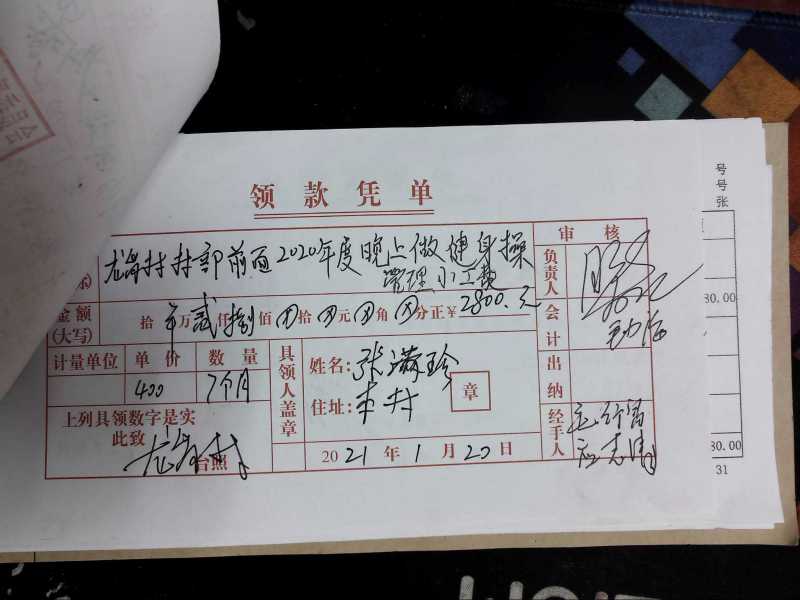 领款凭单
村村部前面2020年度晚上做健身操
管理小工费
审核
负责人
金额
(大写)
拾 万贰仟捌佰 拾 元 角 分正￥2800.元
会计
计量单位 单价 数量
400 7个月
具领人盖章
姓名: 张满珍
住址: 本村
章
出纳
上列具领数字是实
此致
台照
2021年1月20日
经手人
号
号
张
80.00
80.00
31